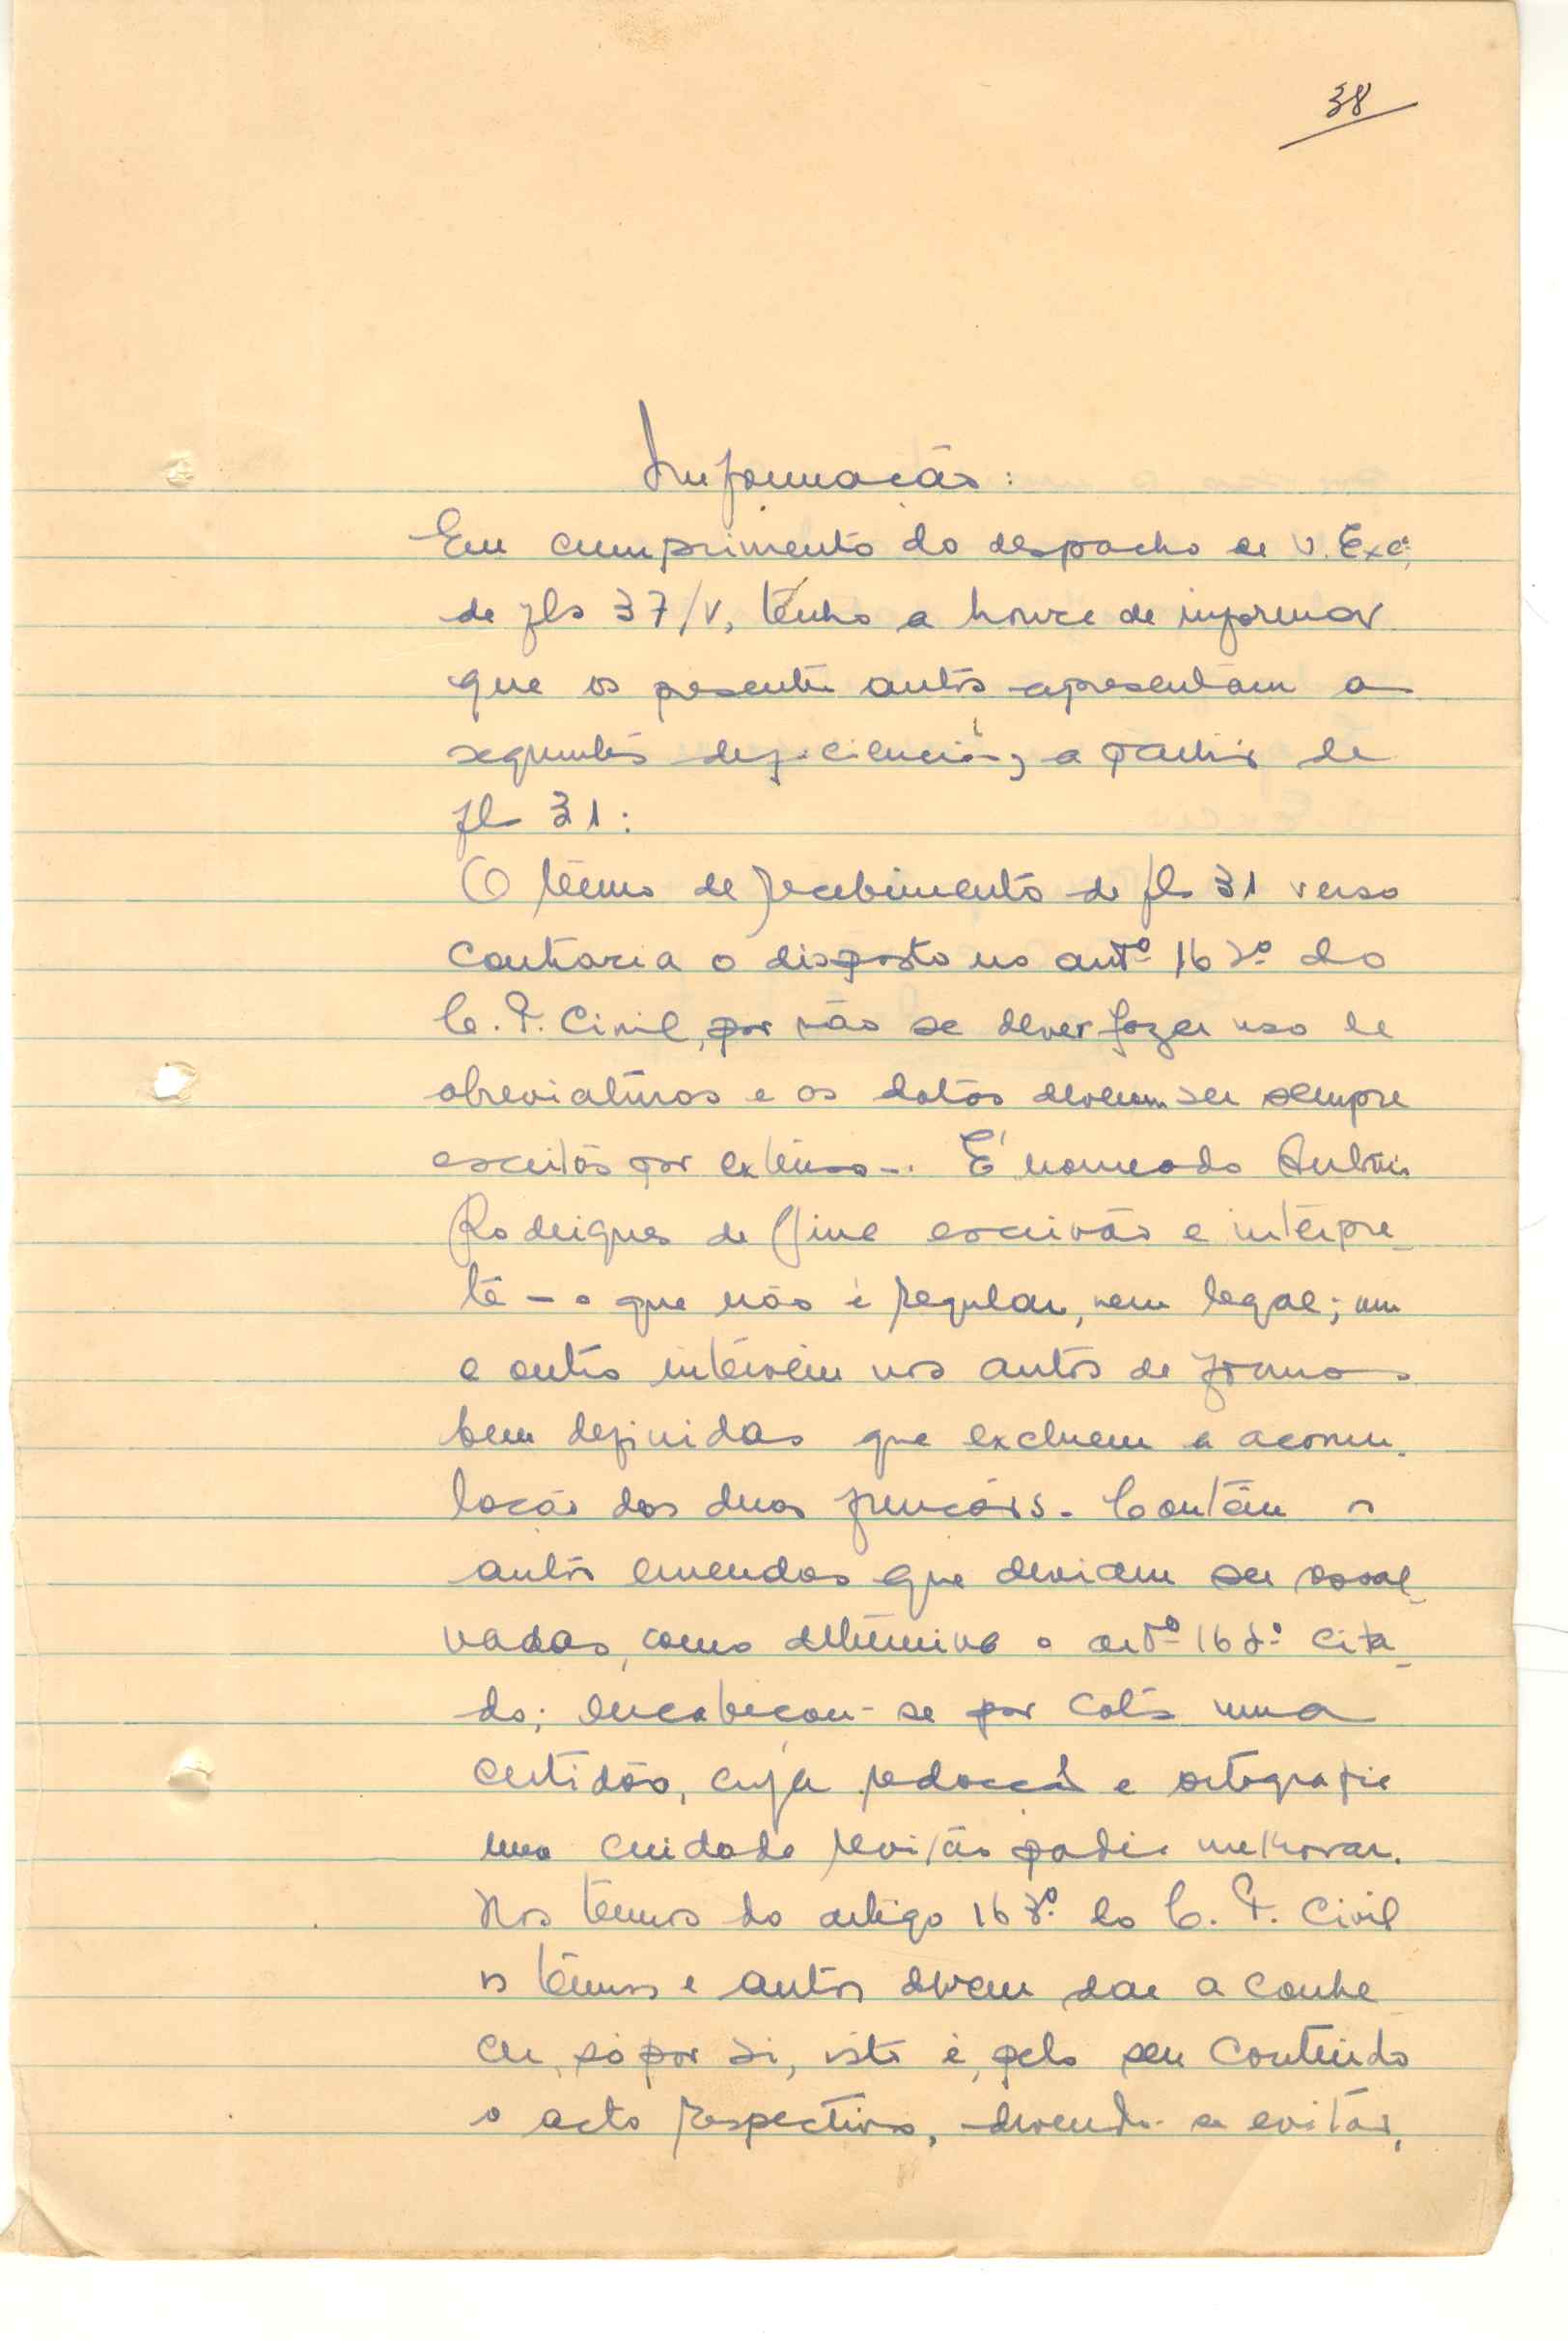 38
Informação:
Em cumprimento do despacho de V. Excª,
de fls 37/V, tenho a honra de informar
que os presentes autos apresentam as
seguintes deficiencias, a partir de
fls 31:
O têrmo de recebimento de fls 31 verso
contraria o disposto no artº do
C. P. Civil, por não se dever fazer uso de
abreviaturas e as datas devem ser sempre
escritas por extenso. É nomeado António
Rodrigues de escrivão e intérpre-
te – o que não é regular, nem legal; um
e outro intervêm nos autos de formas
bem definidas que excluem a acomu-
lação das duas funções. Contêm os
autos emendas que deviam ser ressal-
vadas, como determina o artº cita-
do; encabeçou-se por cota uma
certidão, cuja redacção e ortografia
uma cuidada revisão podia melhorar.
Nos têrmos do artigo 163º do C. P. Civil
os têrmos e autos devem dar a conhe
cer, só por si, isto é, pelo seu conteúdo
o acto respectivo, devendo-se evitar,